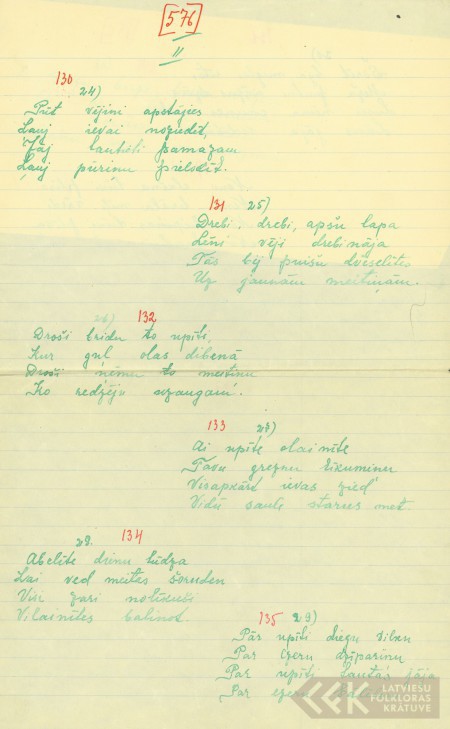 [576]
II
130
24)
Pūt vējiņi apstājies
Ļauj ievai noziedēt,
Jāj tautieti pamazam
Ļauj pūriņu pielocīt.
131 25)
Drebi, drebi, apšu lapa
Lēni vēji drebināja
Tās bij puišu dvēselītes
Uz jaunām meitiņām.
26) 132
Droši bridu to upīti,
Kur guļ olas dibenā
Droši ņēmu to meitiņu
Ko redzēju uzaugam.
133 27)
Ai upīte olainīte
Tavu greznu likumiņu
Visapkārt ievas zied
Vidū saule starus met.
28. 134
Abelīte dievu lūdza
Lai ved meitas šoruden
Visi zari nolīkuši
Vilainītes balinot.
135 29)
Pār upīti diegu vilku
Par ezeru dzīpariņu
Par upīti tautas jāja
Par ezeru
LATVIEŠU
FOLKLORAS
KRĀTUVE